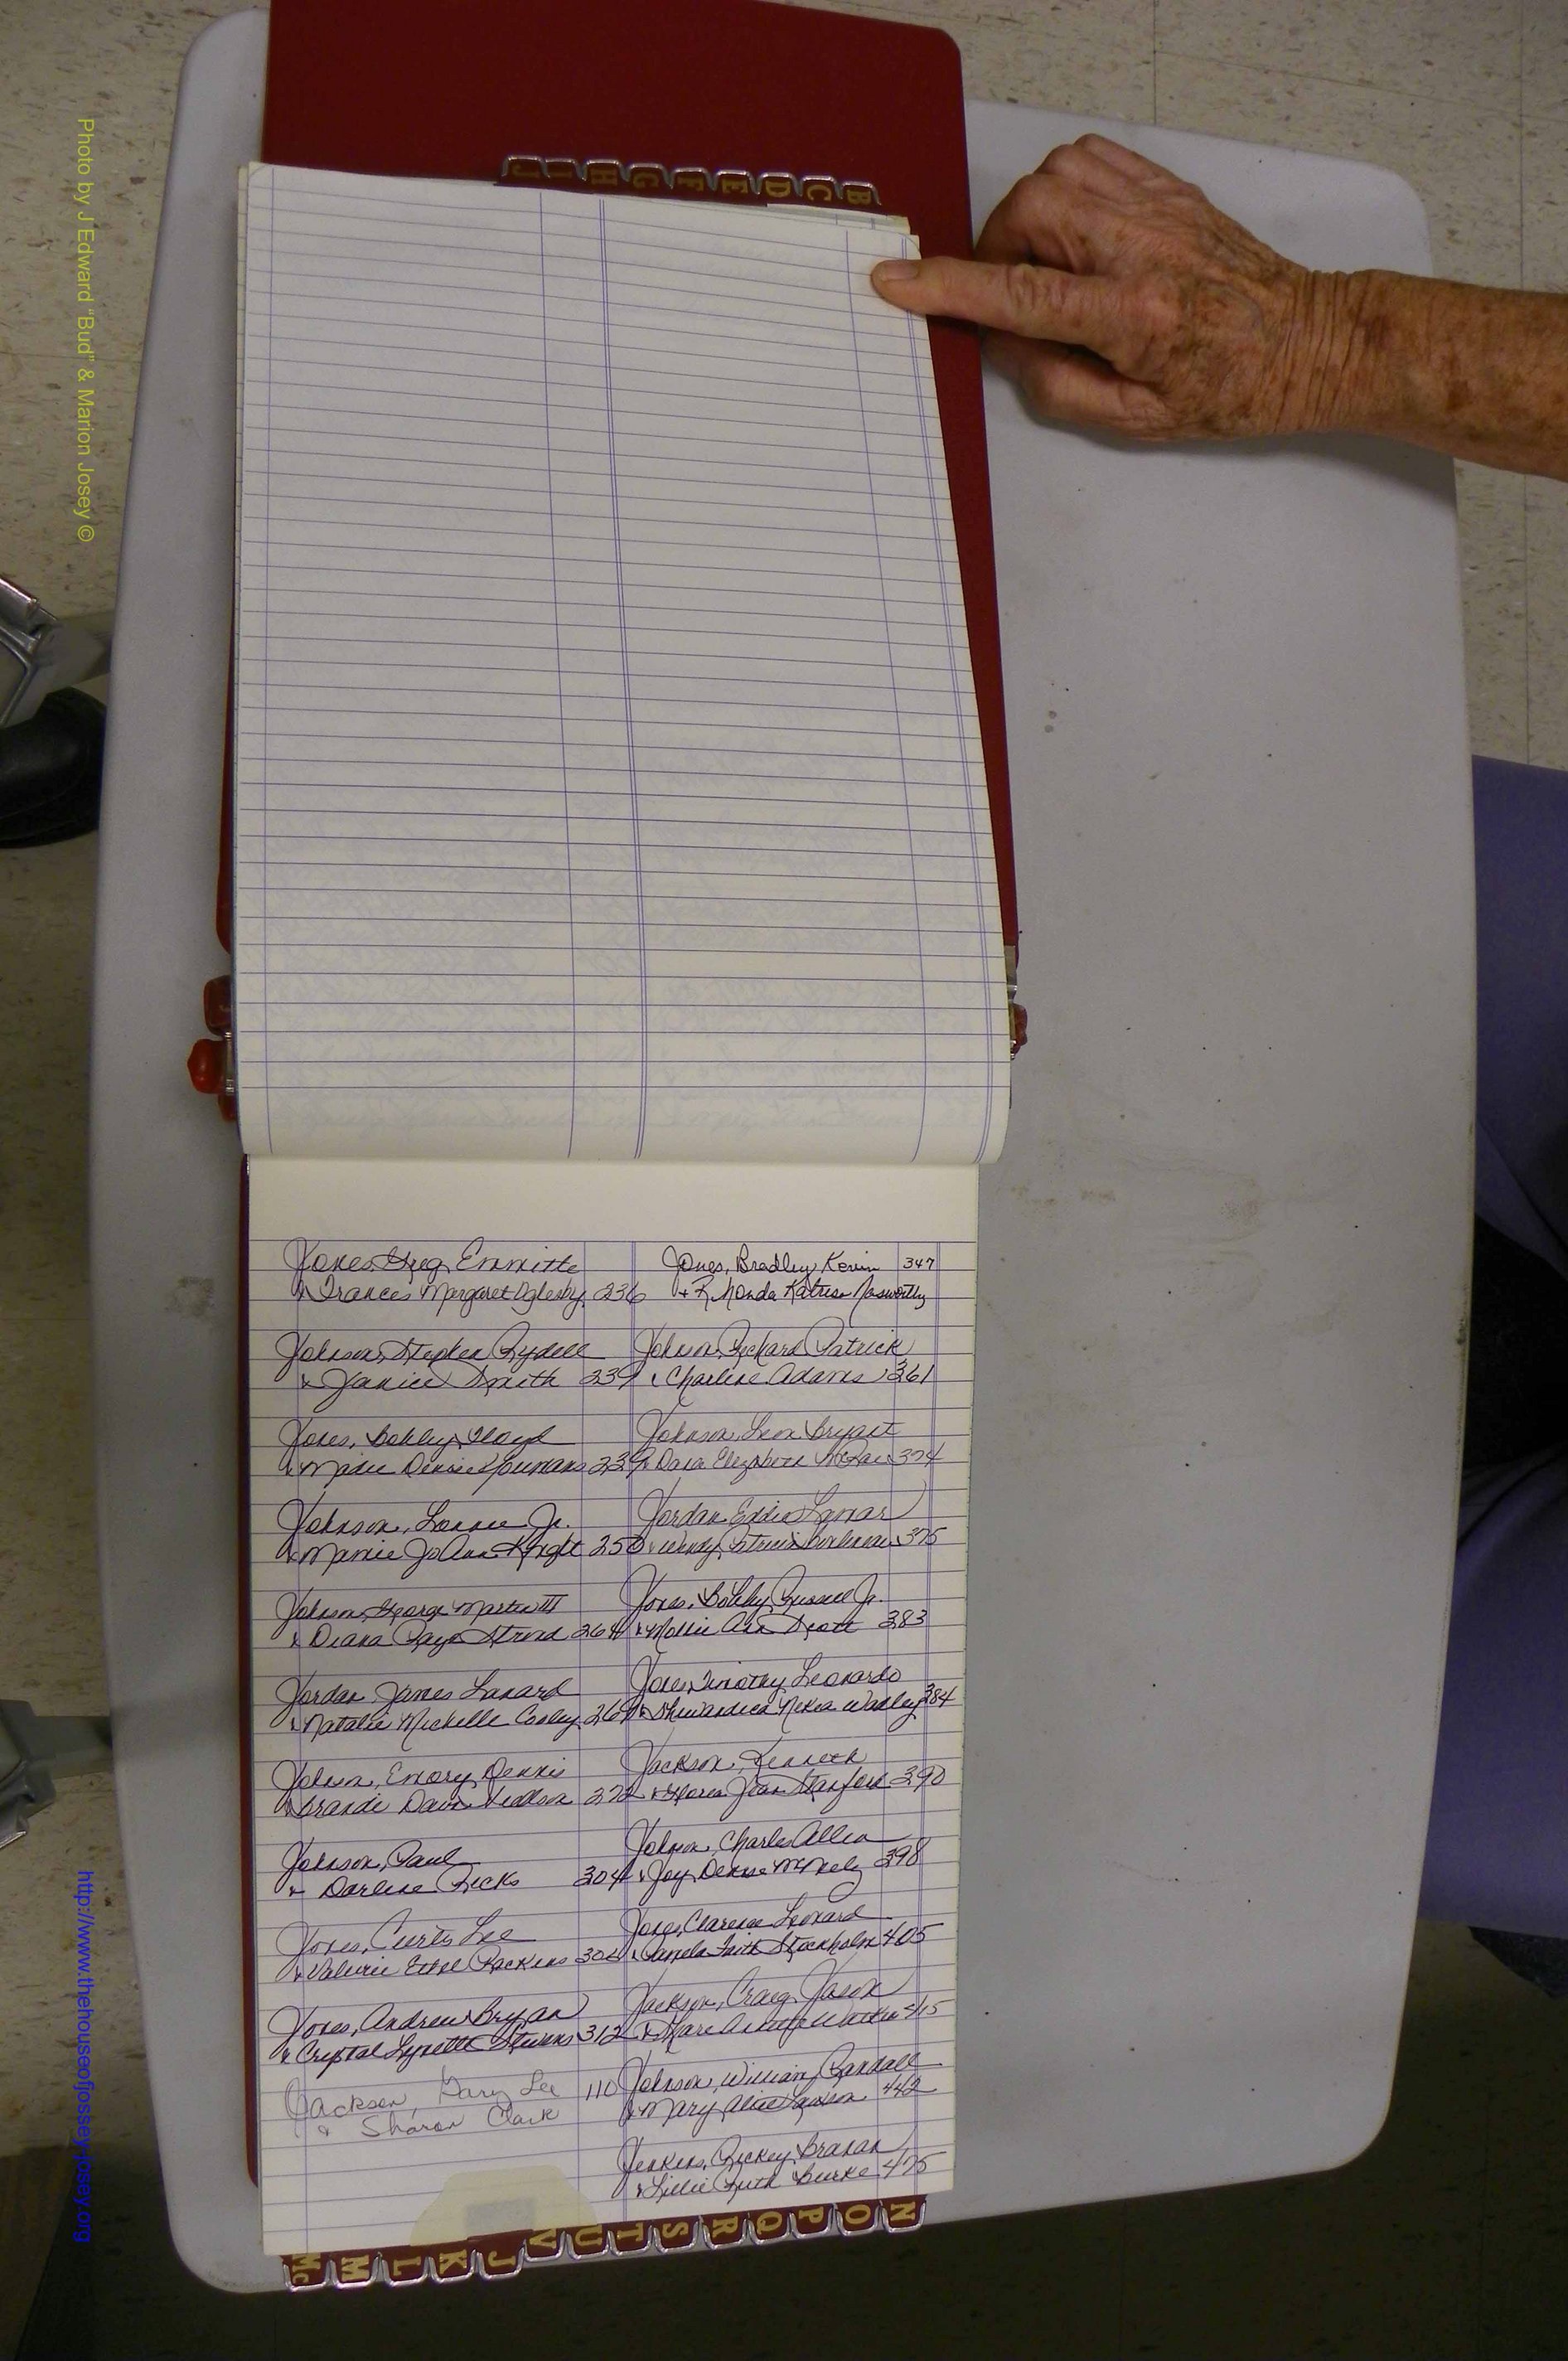 B C D E F G H I J
Jones, Greg Emmitte
& Frances Margaret Oglesby 236
Johnson, Stephen Rydell
& Janice Smith 239
Jones, Bobby Floyd
& Denise Youmans 239
Johnson, Lonnie Jr.
& Mamie JoAnn Knight 250
Johnson, George III
& Diana Gaye 264
Jordan, James Lanard
& Natalie Michelle Cooley 269
Johnson, Emory Dennis
& Brandi Dawn 272
Johnson, Paul
& Darlene Ricks 304
Jones, Curtis Lee
& Valerie Ethel 304
Jones, Andrew Bryan
& Crystal Lynette 312
Jackson, Gary Lee 110
& Sharon Clark
Jones, Bradley Kevin 347
+ Rhonda Katrese Nosworthy
Johnson, Richard Patrick
& Charlene Adams 361
Johnson, Leon Bryant
& Dana Elizabeth McRae 374
Jordan, Eddie Lamar
& Wendy Patricia 375
Jones, Bobby Russell Jr.
& Mollie Ann Scott 383
Jones, Timothy Leonardo
& Nekea Wadley 384
Jackson, Kenneth
& Jean Stanford 390
Johnson, Charles Allen
& Joy Denise McNeely 398
Jones, Clarence Leonard
& Pamela Faith Stockholm 405
Jackson, Craig Jason
& 415
Johnson, William Randall
& Mary Alice Lawson 442
Jenkins, Rickey Branan
& Lillie Ruth Burke 475
Mc M L K J V U T S R Q P O N
Photo by J Edward "Bud" & Marion Josey ©
http://www.thehouseofjossey-josey.org